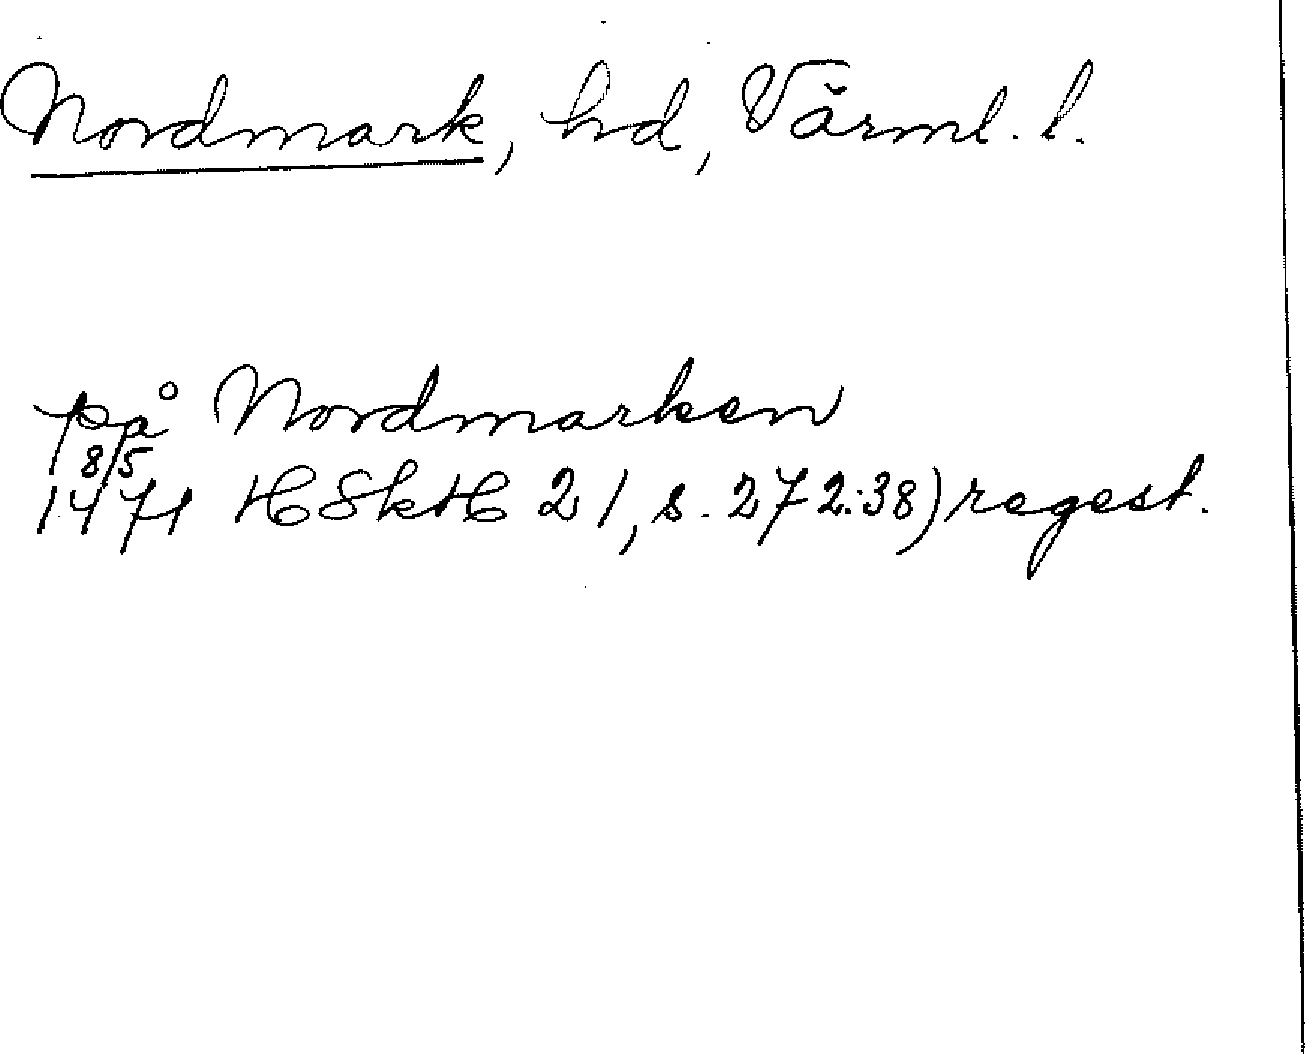 Nordmark, hd, Värml. l.
på Nordmarken
8/5
1471 HSkH 21, s. 272:38) regest.